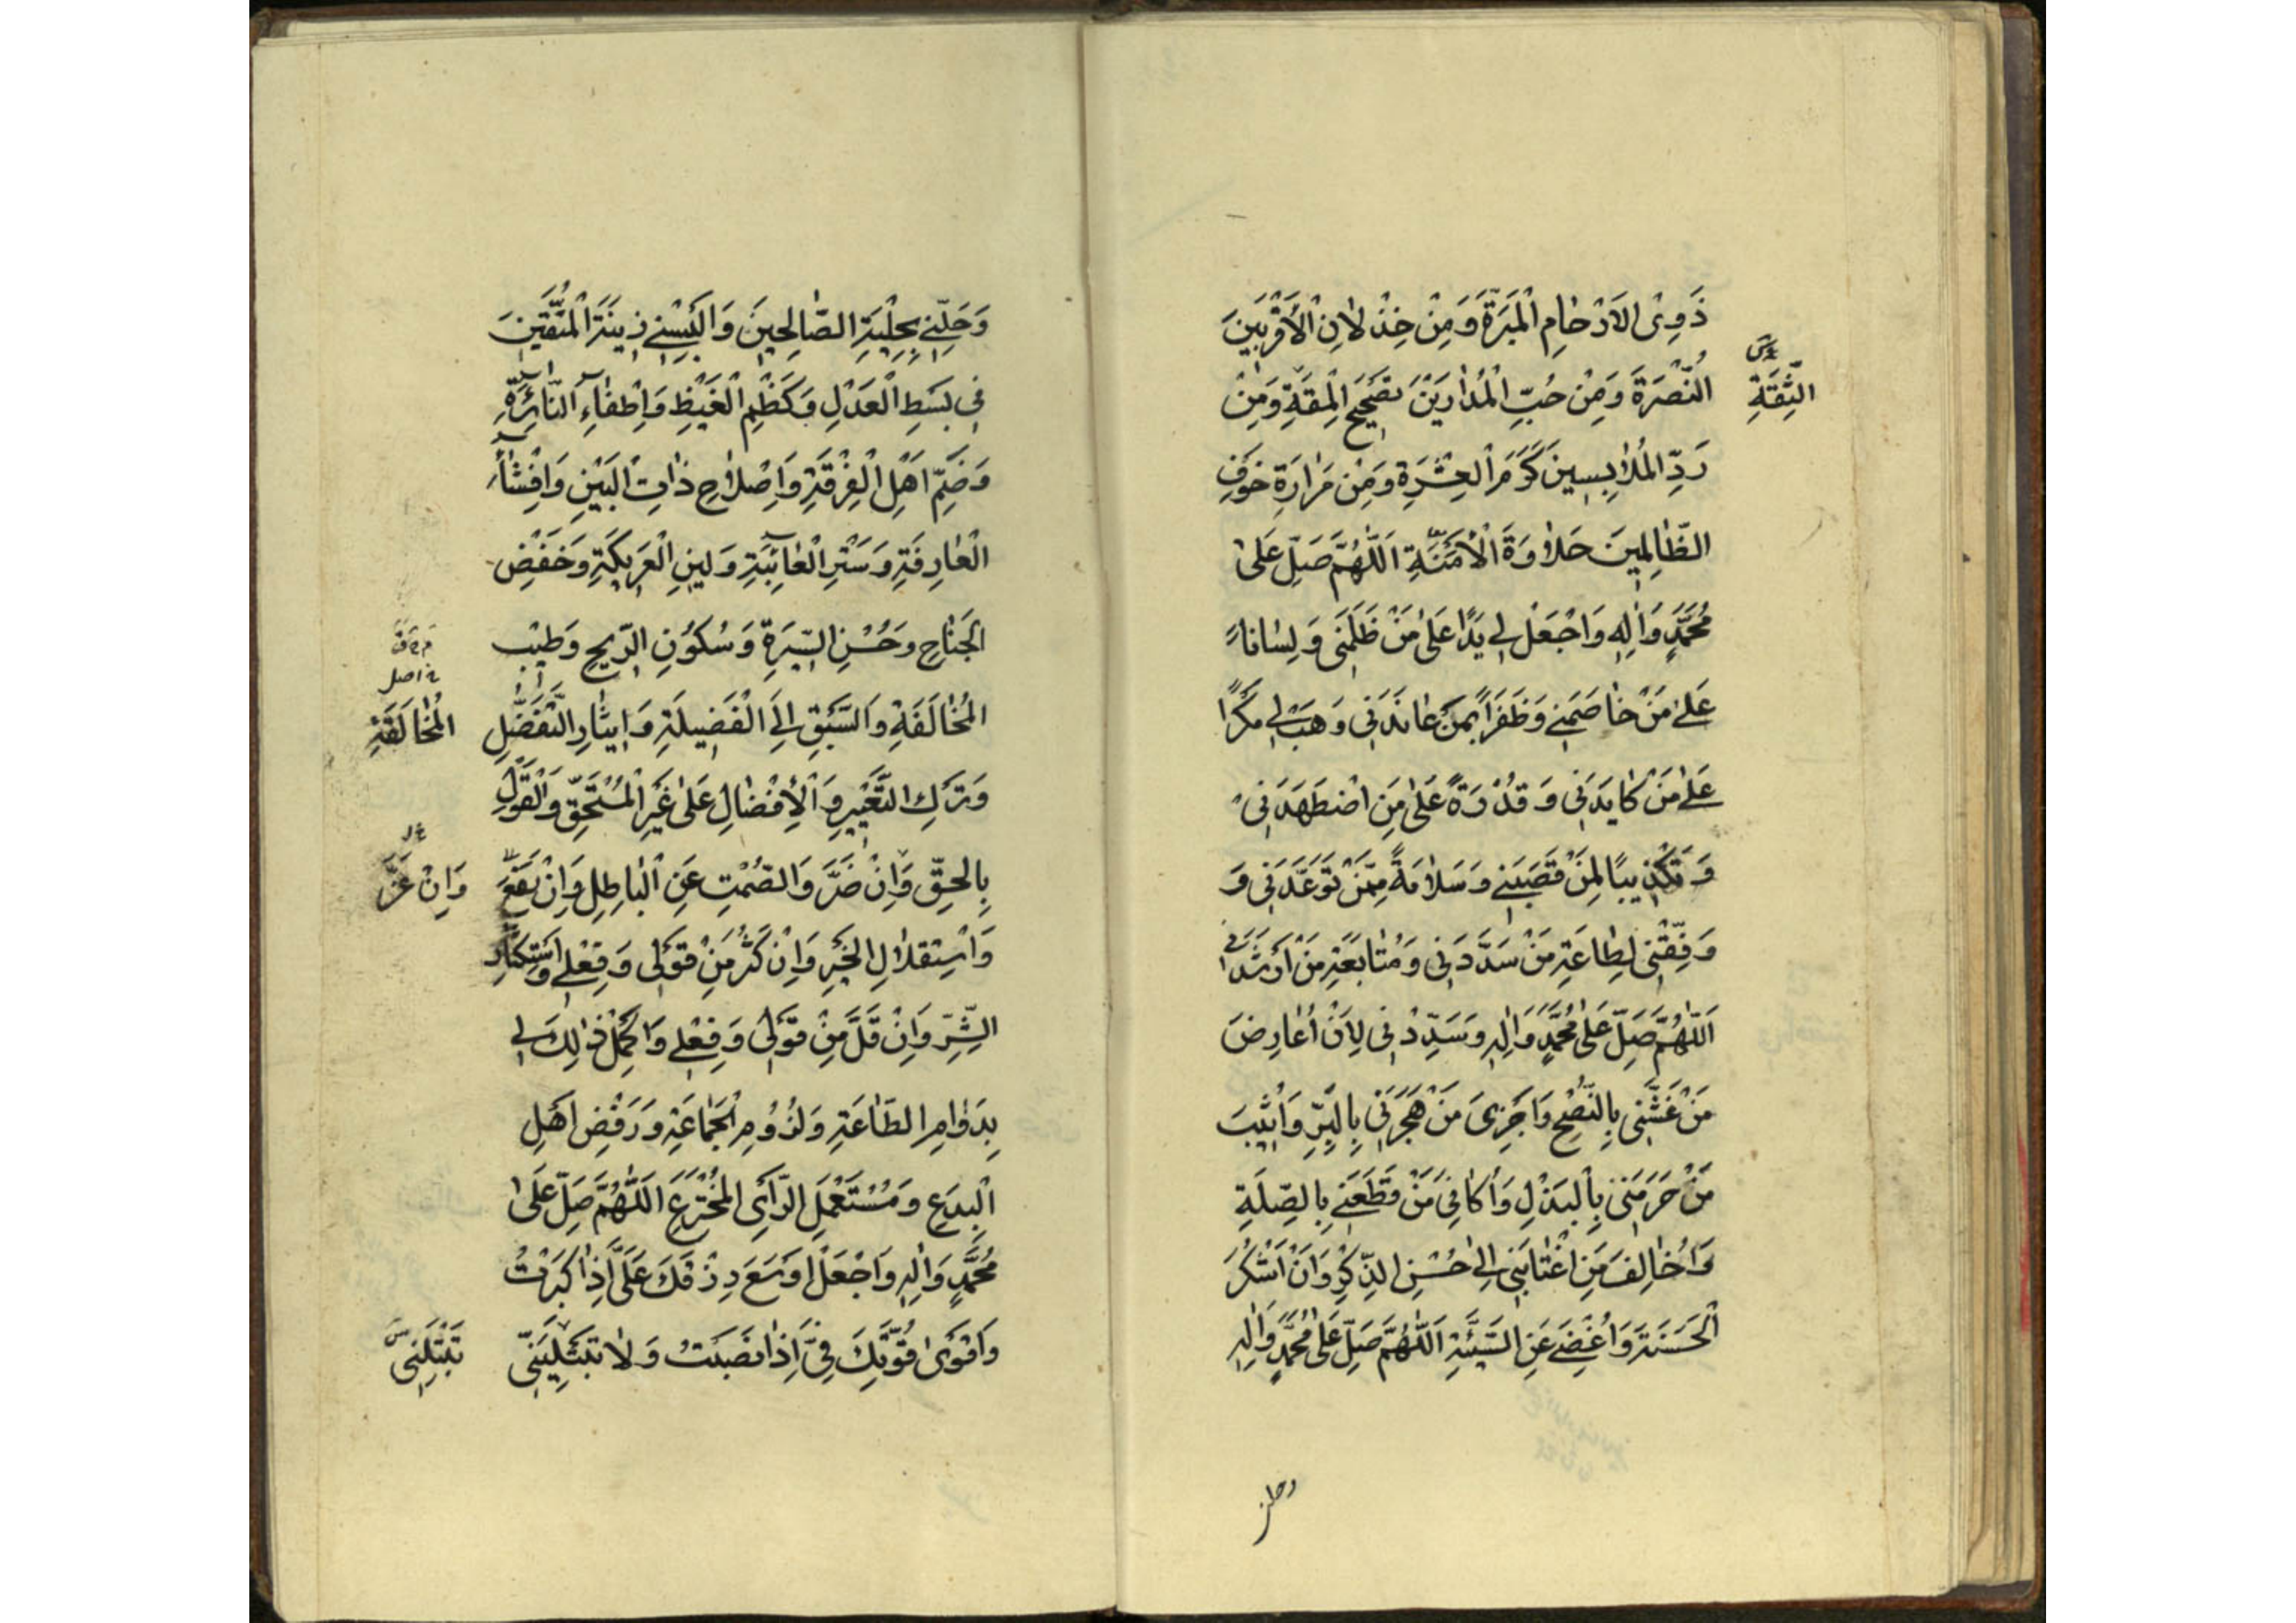 ذَوِى الاَرْحٰامِ الْمَبَرَّةَ وَمِنْ خِذْلاٰنِ الْأَقْرَبِينَ
النُّصْرَةَ وَمِنْ حُبِّ الْمُدٰارِينَ تَصْحِيحَ الْمِقَةِ وَمِنْ
الثِّقَةِ
رَدِّ الْمُلاٰبِسِينَ كَرَمَ الْعِشْرَةِ وَمِنْ مَرٰارَةِ خَوْفِ
الظّٰالِمِينَ حَلاٰوَةَ الْأَمَنَةِ اَللّٰهُمَّ صَلِّ عَلىٰ
مُحَمَّدٍ وَاٰلِهِ وَاجْعَلْ لِي يَدًا عَلىٰ مَنْ ظَلَمَنِى وَلِسٰاناً
عَلىٰ مَنْ خٰاصَمَنِى وَظَفَراً بِمَنْ عٰانَدَنِى وَهَبْ لِى مَكْرًا
عَلىٰ مَنْ كٰايَدَنِى وَقُدْرَةً عَلىٰ مَنِ اضْطَهَدَنِى
وَتَكْذِيبًا لِمَنْ قَصَبَنِى وَسَلاٰمَةً مِمَّنْ تَوَعَّدَنِى وَ
وَفِّقْنِى لِطٰاعَةِ مَنْ سَدَّدَنِى وَمُتٰابَعَةِ مَنْ اَرْشَدَنِى
اَللّٰهُمَّ صَلِّ عَلىٰ مُحَمَّدٍ وَاٰلِهِ وَسَدِّدْنِى لِاَنْ اُعٰارِضَ
مَنْ غَشَّنِى بِالنُّصْحِ وَاَجْزِىَ مَنْ هَجَرَنِى بِالْبِرِّ وَاُثِيبَ
مَنْ حَرَمَنِى بِالْبَذْلِ وَاُكٰافِىَ مَنْ قَطَعَنِى بِالصِّلَةِ
وَاُخٰالِفَ مَنِ اغْتٰابَنِى اِلىٰ حُسْنِ الذِّكْرِ وَاَنْ اَشْكُرَ
الْحَسَنَةَ وَاُغْضِىَ عَنِ السَّيِّئَةِ اَللّٰهُمَّ صَلِّ عَلىٰ مُحَمَّدٍ وَاٰلِهِ
وحلنى
وَحَلِّنِى بِحِلْيَةِ الصّٰالِحِينَ وَاَلْبِسْنِى زِينَةَ الْمُتَّقِينَ
فِى بَسْطِ الْعَدْلِ وَكَظْمِ الْغَيْظِ وَاِطْفٰاءِ النّٰائِرَةِ
وَضَمِّ اَهْلِ الْفُرْقَةِ وَاِصْلاٰحِ ذٰاتِ الْبَيْنِ وَاِفْشٰاءِ
الْعٰارِفَةِ وَسَتْرِ الْعٰائِبَةِ وَلِينِ الْعَرِيكَةِ وَخَفْضِ
الْجَنٰاحِ وَحُسْنِ السِّيرَةِ وَسُكُونِ الرِّيحِ وَطِيبِ
الْمُخٰالَفَةِ وَالسَّبْقِ اِلَى الْفَضِيلَةِ وَاِيثٰارِ التَّفَضُّلِ
الْمُخٰالَقَةِ
وَتَرْكِ التَّعْيِيرِ وَالْأِفْضٰالِ عَلىٰ غَيْرِ الْمُسْتَحِقِّ وَالْقَوْلِ
بِالْحَقِّ وَاِنْ ضَرَّ وَالصُّمْتِ عَنِ الْبٰاطِلِ وَاِنْ نَفَعَ
وَاِنْ عَزَّ
وَاسْتِقْلاٰلِ الْخَيْرِ وَاِنْ كَثُرَ مِنْ قَوْلِى وَفِعْلِى وَاسْتِكْثٰارِ
الشَّرِّ وَاِنْ قَلَّ مِنْ قَوْلِى وَفِعْلِى وَاَكْمِلْ ذٰلِكَ لِى
بِدَوٰامِ الطّٰاعَةِ وَلُزُومِ الْجَمٰاعَةِ وَرَفْضِ اَهْلِ
الْبِدَعِ وَمُسْتَعْمِلِ الرَّأىِ الْمُخْتَرَعِ اَللّٰهُمَّ صَلِّ عَلىٰ
مُحَمَّدٍ وَاٰلِهِ وَاجْعَلْ اَوْسَعَ رِزْقِكَ عَلَىَّ اِذٰا كَبِرْتُ
وَاَقْوىٰ قُوَّتِكَ فِىَّ اِذٰا نَصِبْتُ وَلاٰ تَبْتَلِيَنِّى
تَبْتَلِنِى